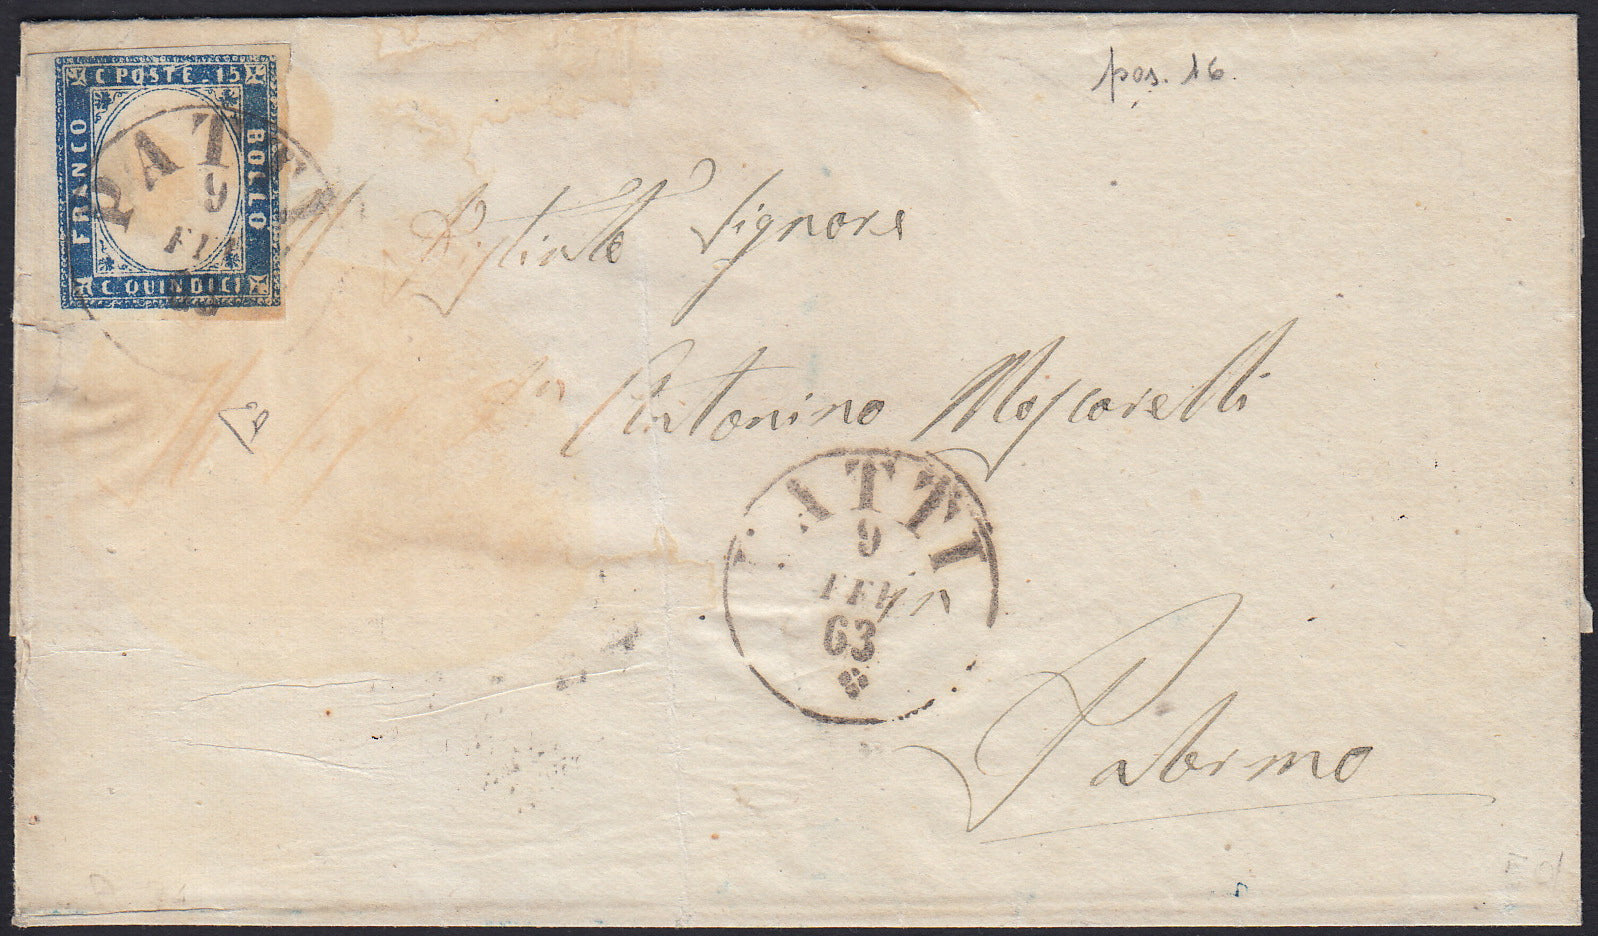 pos. 16
C POSTE . 15
FRANCO
BOLLO
C QUINDICI
PATTI
9
FEB
63
Signore
Antonino Moscarelli
PATTI
9
FEB
63
in
Palermo